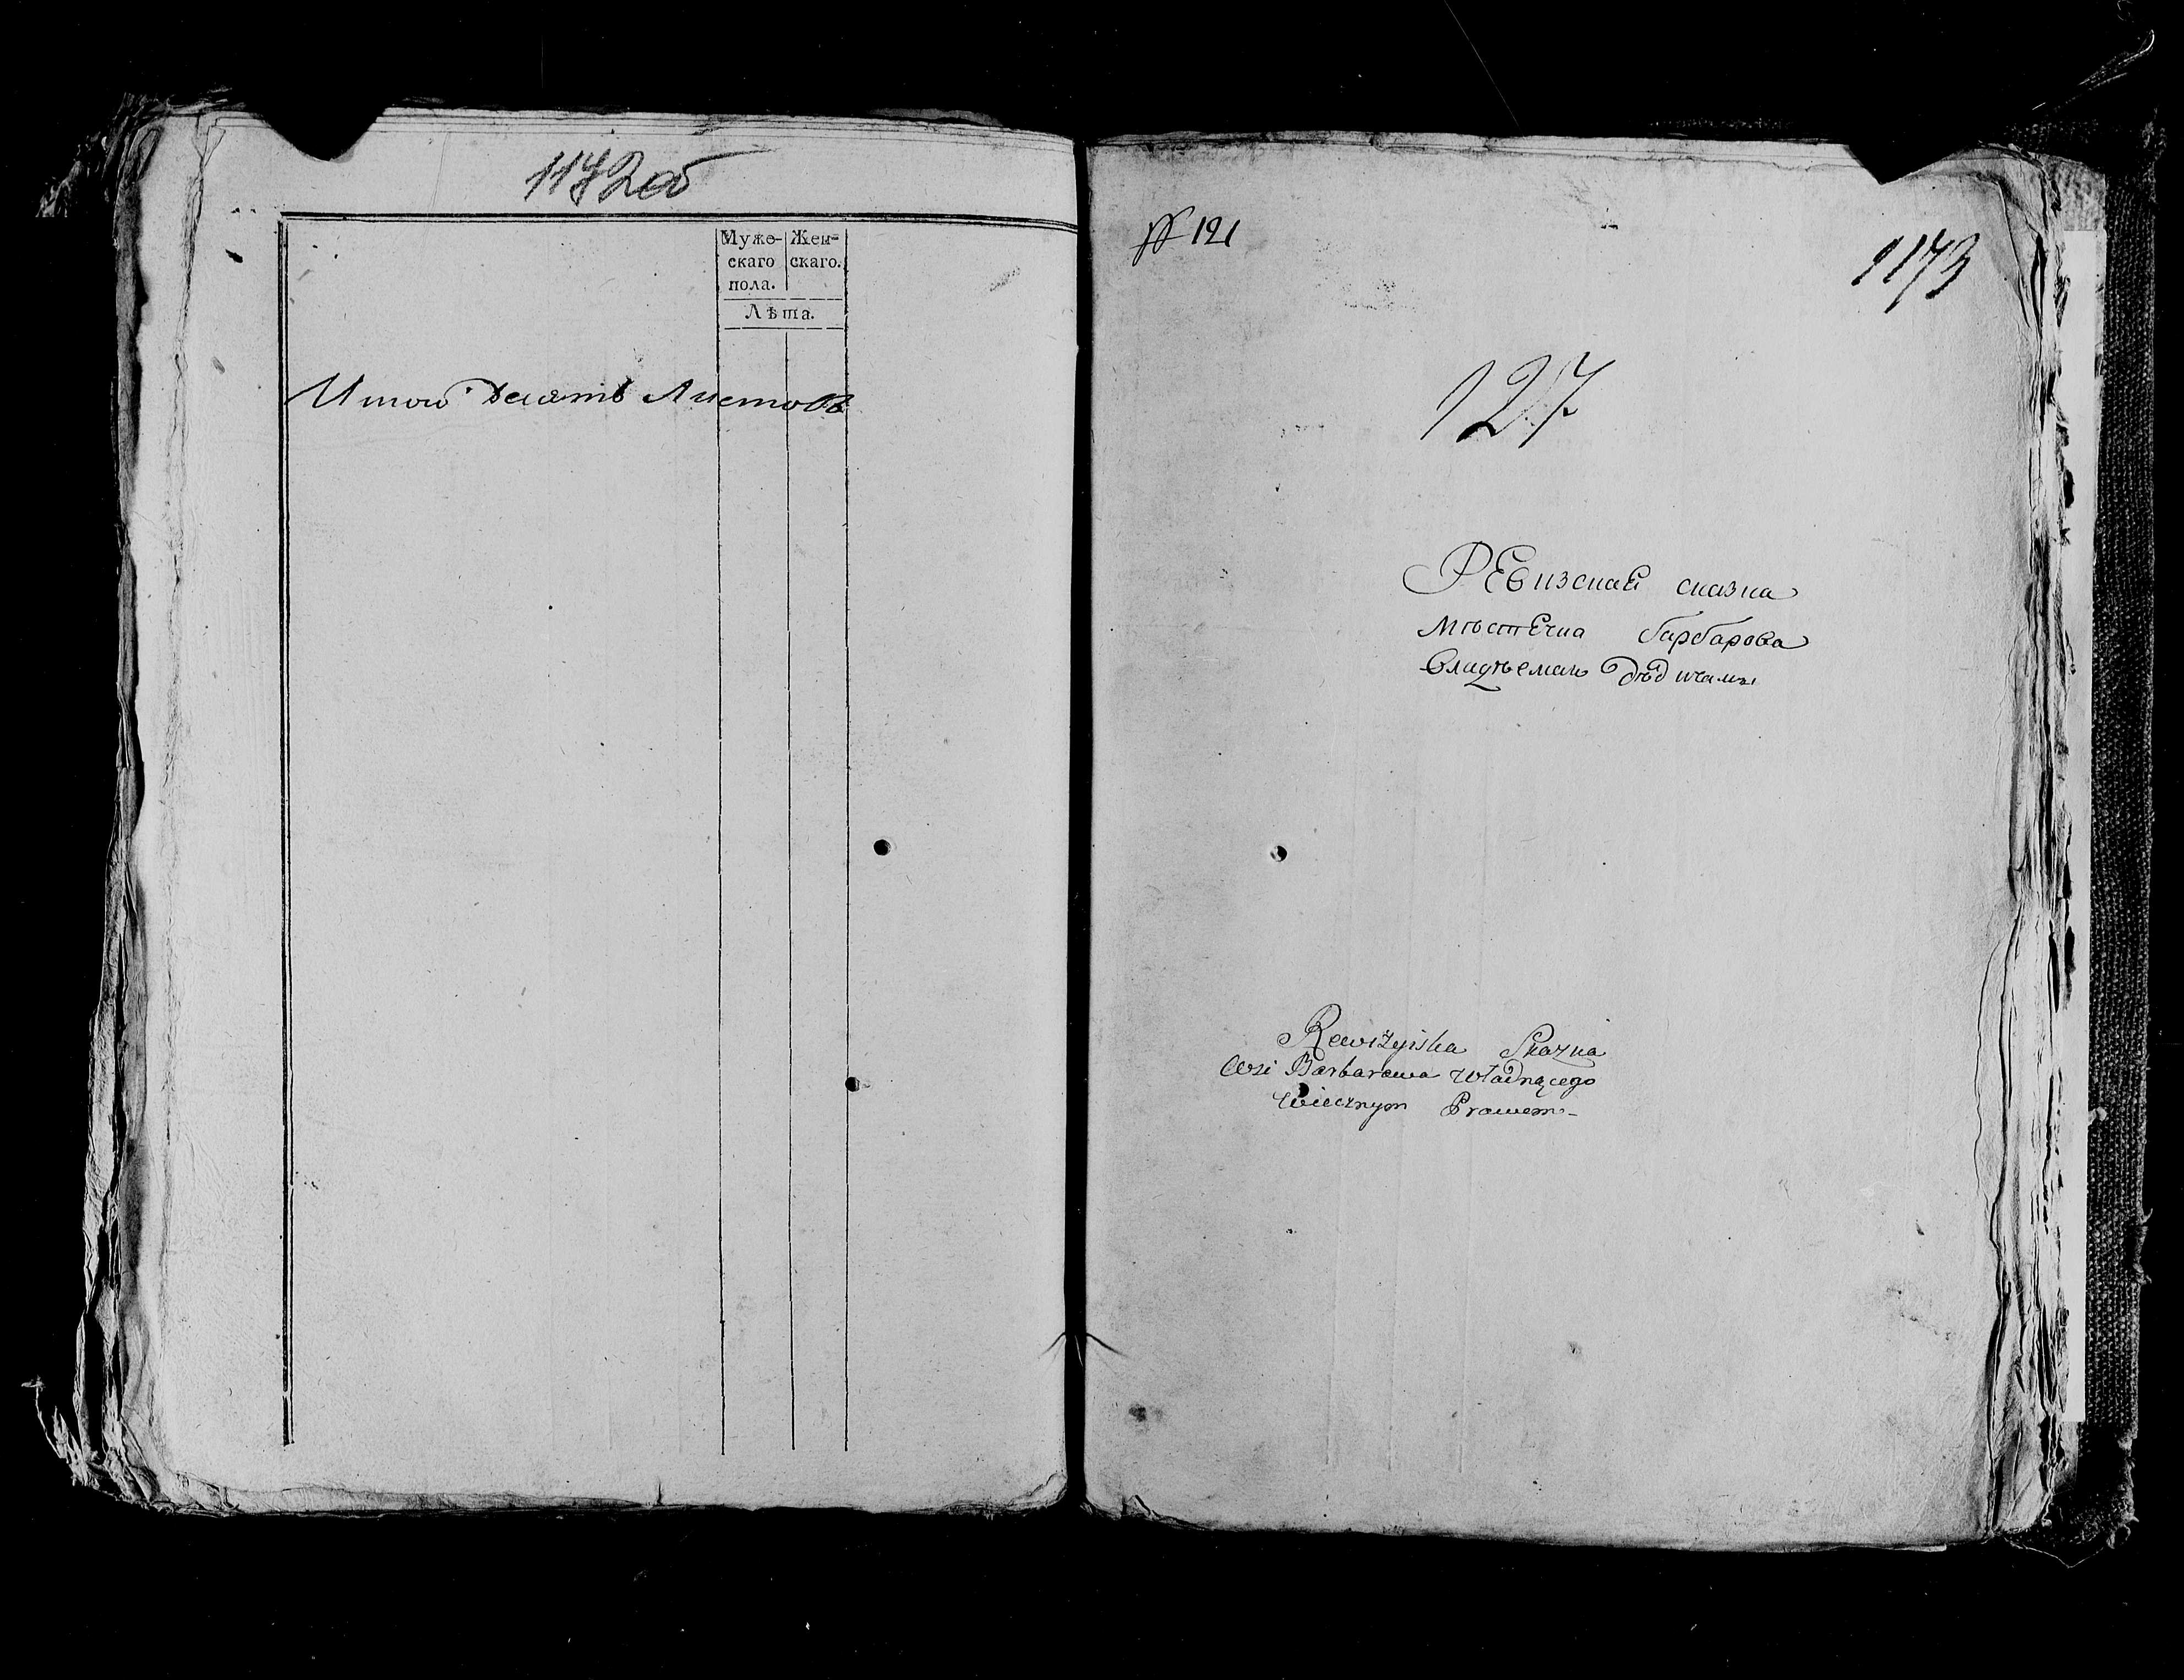 1172об
Муже- Жен-
скаго скаго.
пола.
Лѣта.
Итого десять Листовъ
№ 121
1173
127
РЕвизская сказка
мѣстЕчка барбарова
владѣемаго
Rewizyiska Skazka
Wsi Barbarowa władnącego
Wiecznym Prawem